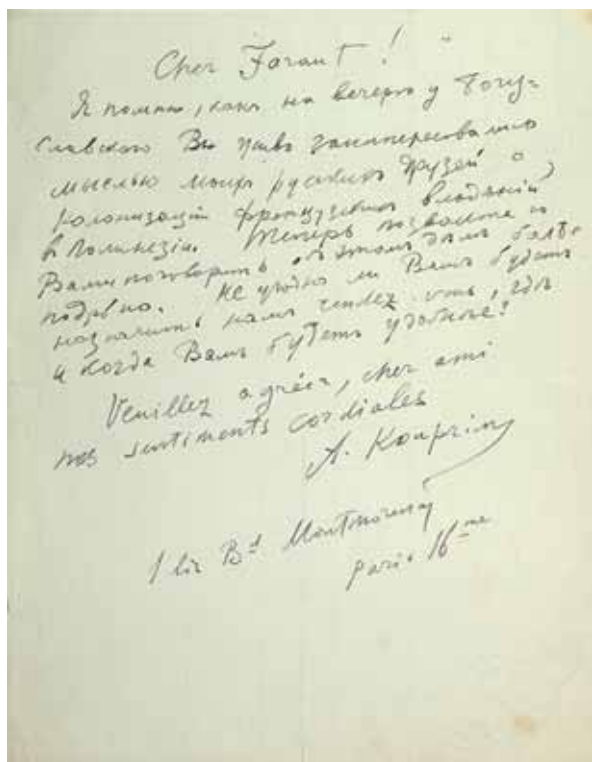 Cher Faraut!
Я помню, какъ на вечерѣ у Богу-
славского Вы живо заинтересовались
мыслью моихъ русскихъ друзей о
колонизаціи французскихъ владѣній
в Полинезіи. Теперь позвольте с
Вами поговорить о этомъ дѣлѣ болѣе
подробно. Не угодно ли Вамъ будетъ
назначить намъ rendez-vous, гдѣ
и когда Вамъ будетъ удобнѣе?
Veuillez agréer, cher ami
nos sentiments cordiales
A. Kouprine
1 bis Bd Montmorency
Paris 16me